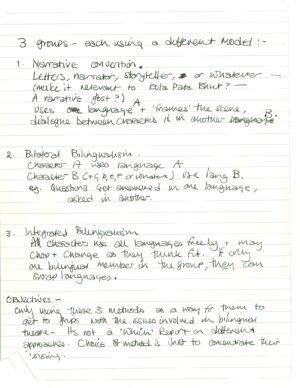 3 groups - each using a different model :-
1. Narrative convention.
Letters, narrator, storyteller, or whatever —
(make it relevant to Kola Pata Bhut? —
A narrative ghost?)
Uses one language A + 'frames' the scene,
dialogue between characters is in another language B.
2. Bilateral Bilingualism.
Character A uses language A
Character B (+ C, D, E, F or whatever) use lang B.
eg. Questions get answered in one language,
asked in another.
3. Integrated Bilingualism
All characters use all languages freely + may
Chop + Change as they think fit. If only
one bilingual member in the group, they can
swap languages.
Objectives -
Only using these 3 methods as a way for them to
get to grips with the issues involved in bilingual
theatre - Its not a 'Which' Report on different
approaches. Choice of method is just to concentrate their